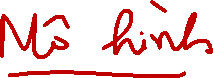 Mô hình